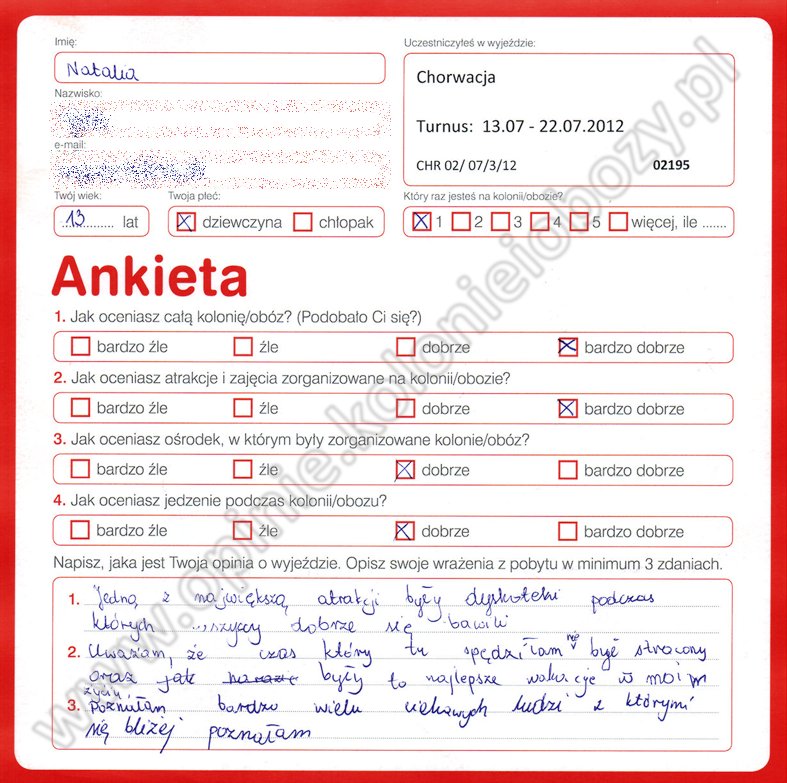 Imię:
Natalia
Nazwisko:
e-mail:
Twój wiek:
13 lat
Twoja płeć:
dziewczyna chłopak
Uczestniczyłeś w wyjeździe:
Chorwacja
Turnus: 13.07 - 22.07.2012
CHR 02/ 07/3/12 02195
Który raz jesteś na kolonii/obozie?
1 2 3 4 5 więcej, ile .......
Ankieta
1. Jak oceniasz całą kolonię/obóz? (Podobało Ci się?)
bardzo źle źle dobrze bardzo dobrze
2. Jak oceniasz atrakcje i zajęcia zorganizowane na kolonii/obozie?
bardzo źle źle dobrze bardzo dobrze
3. Jak oceniasz ośrodek, w którym były zorganizowane kolonie/obóz?
bardzo źle źle dobrze bardzo dobrze
4. Jak oceniasz jedzenie podczas kolonii/obozu?
bardzo źle źle dobrze bardzo dobrze
Napisz, jaka jest Twoja opinia o wyjeździe. Opisz swoje wrażenia z pobytu w minimum 3 zdaniach.
1. Jedną z największą atrakcji były dyskoteki podczas
których wszyscy dobrze się bawili
2. Uważam, że czas który tu spędziłam nie był stracony
oraz jak były to najlepsze wakacje w moim
życiu
3. Poznałam bardzo wielu ciekawych ludzi z którymi
się bliżej poznałam
www.opinie.kolonieiobozy.pl